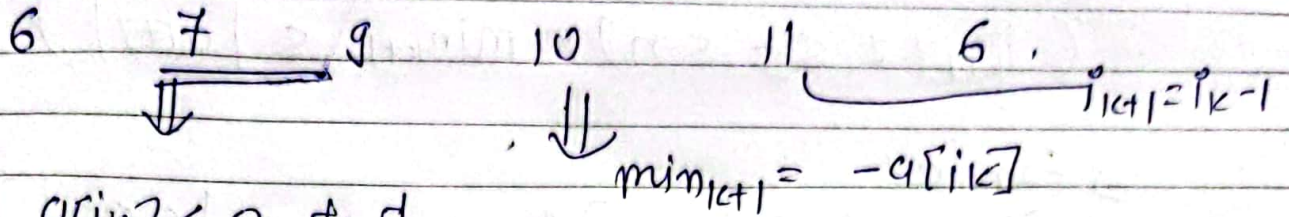 6 7 9 10 11 6 .
i_{k+1} = i_k - 1
min_{k+1} = -a[ik]